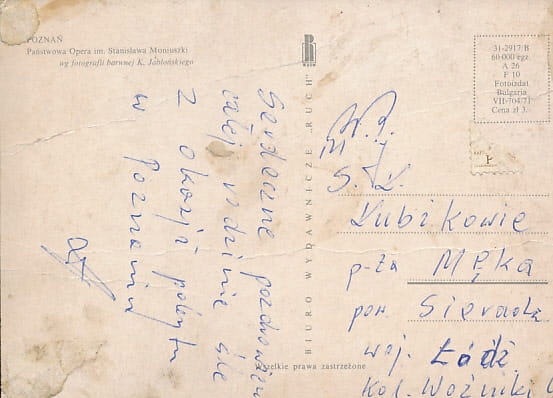 POZNAŃ
Państwowa Opera im. Stanisława Moniuszki
wg fotografii barwnej K. Jabłońskiego
31-2917/B
60 000 egz.
A 26
F 10
Fotoizdat
Bulgaria
VII-704/71
Cena zł 3.
BIURO WYDAWNICZE „RUCH”
RUCH
Wszelkie prawa zastrzeżone
Serdeczne pozdrowien
całej rodzinie śle
z okazji pobytu
w Poznaniu
W. P.
S. Ł.
Kubikowie
p-ta Męka
pow. Sieradz
woj. Łódź
Kol. Woźniki